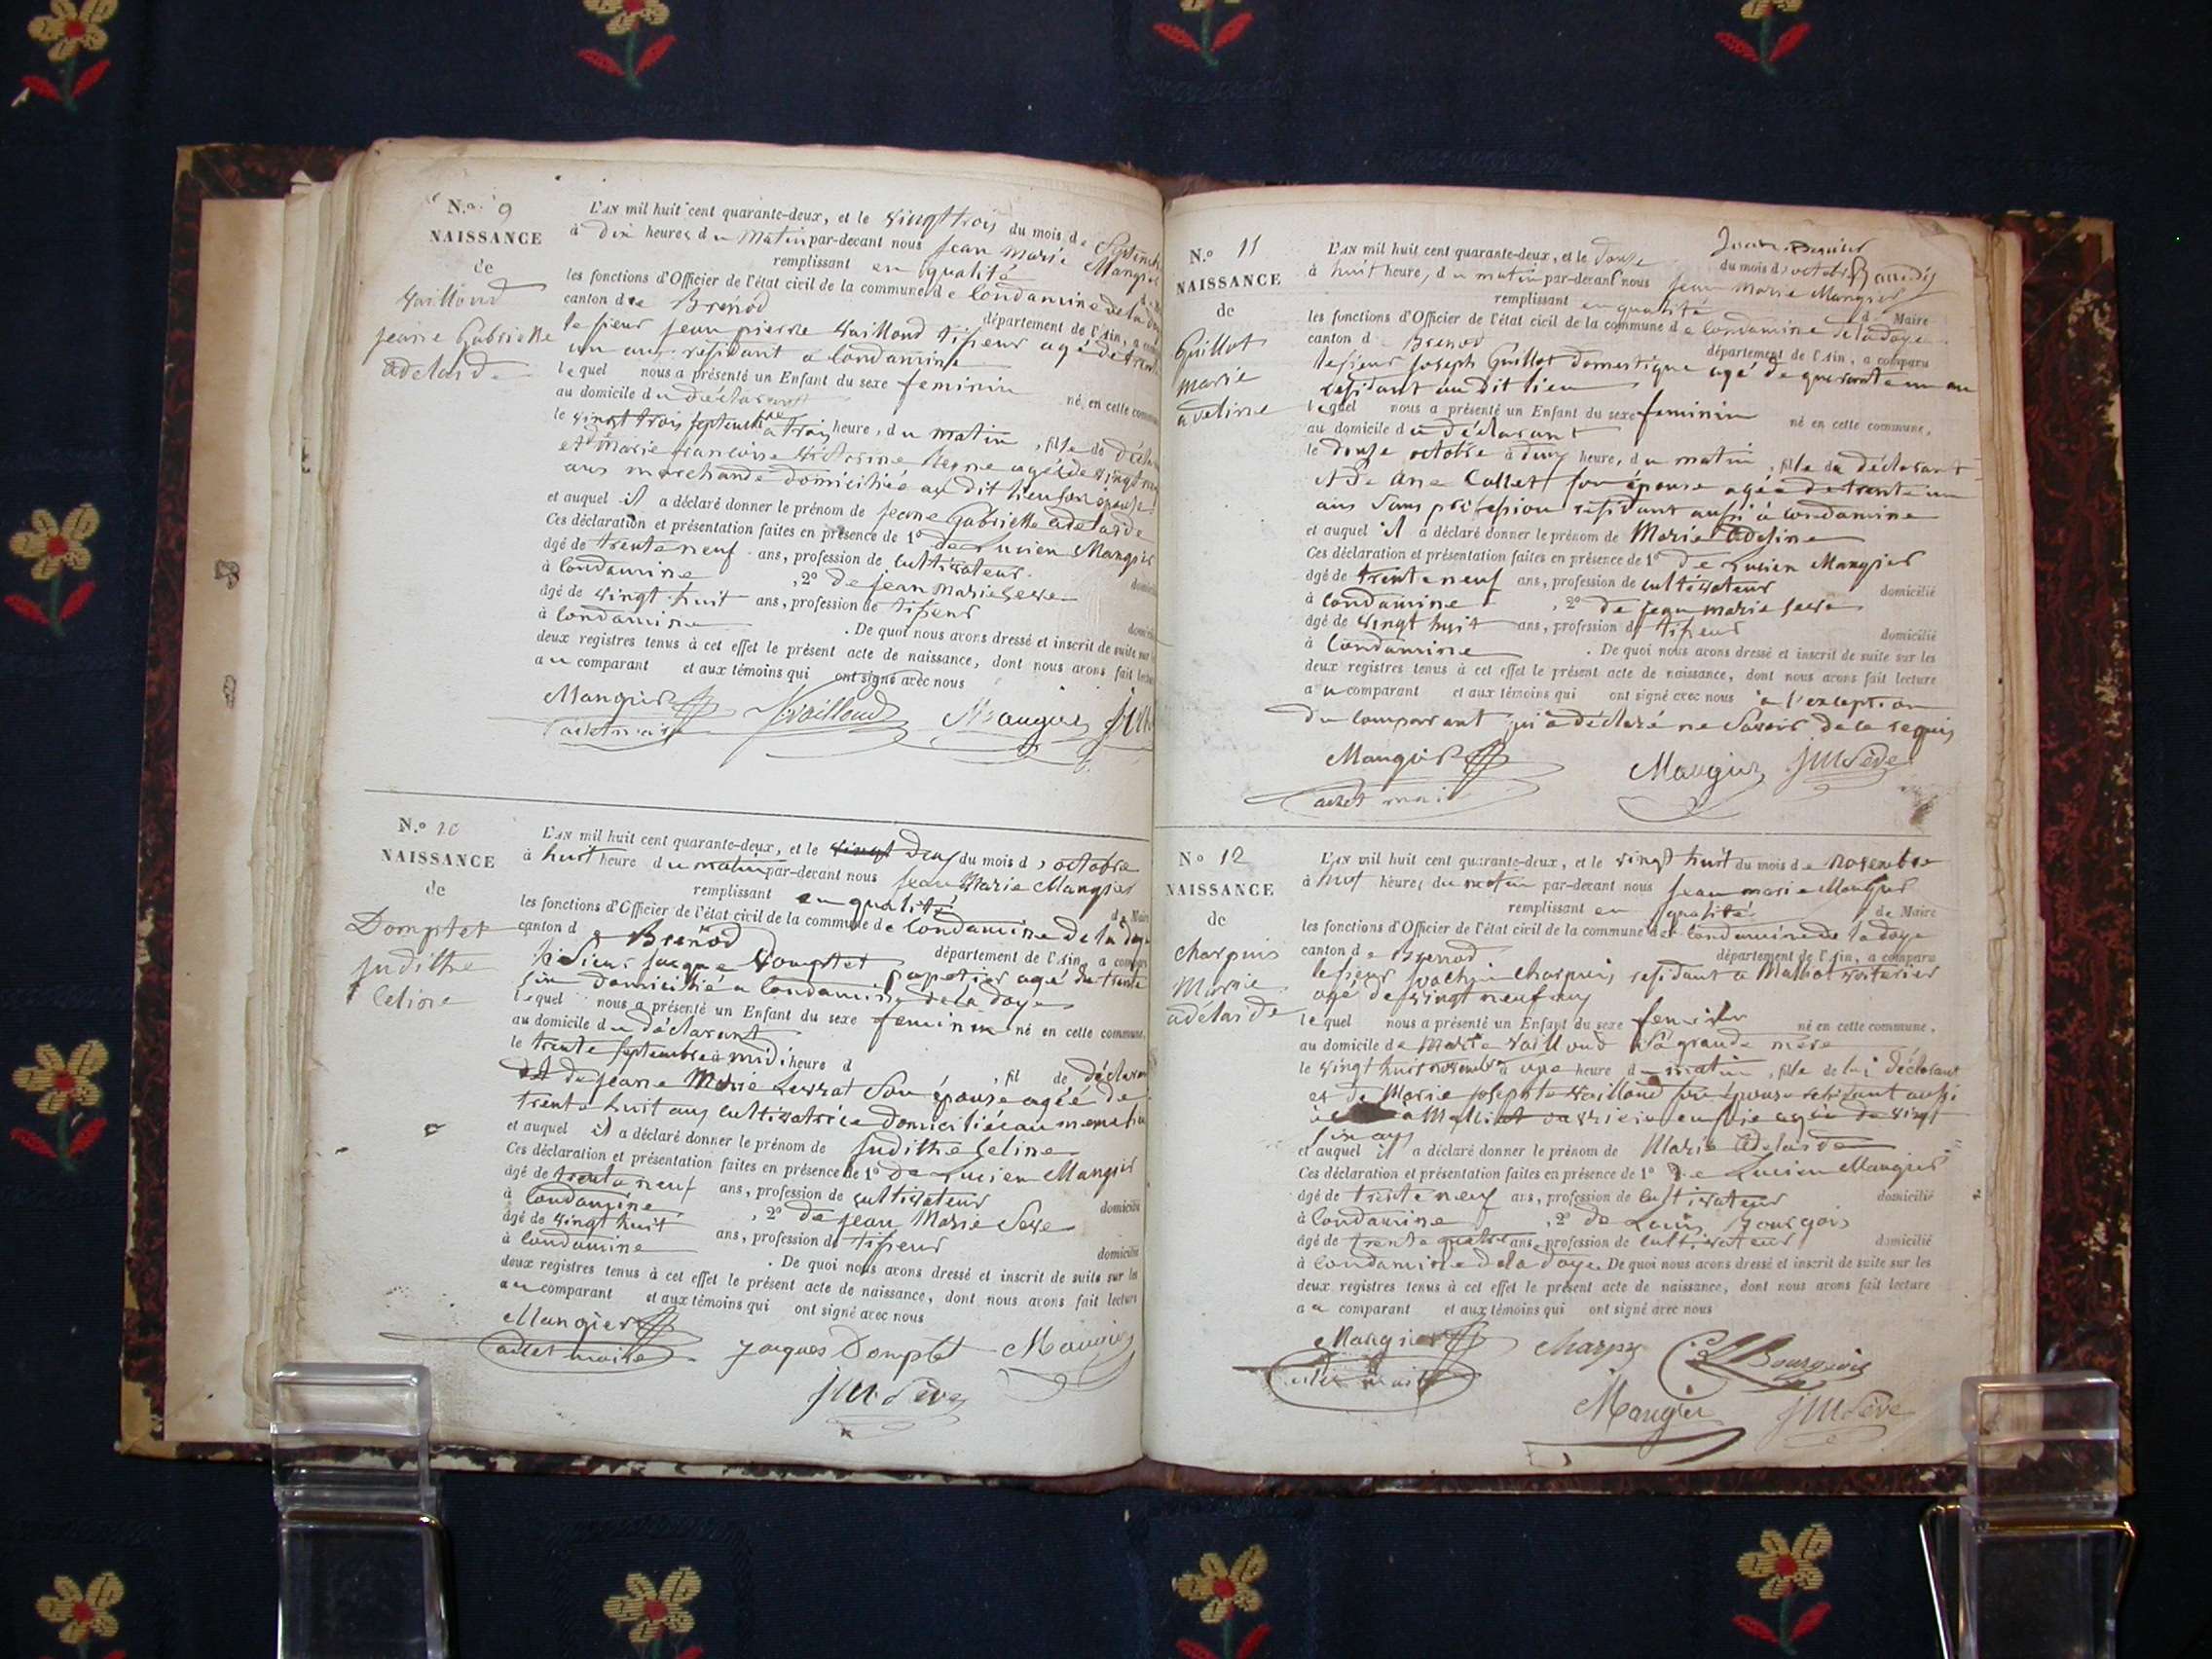 N.º 9
NAISSANCE
de
Vailloud
jeanne Gabrielle
adelaide
L'AN mil huit cent quarante-deux, et le vingt trois du mois de Septembre
à dix heures du matin par-devant nous jean marie Mangier
remplissant en qualité
les fonctions d'Officier de l'état civil de la commune de Condamine de la doye
canton de Brenod département de l'Ain, a comparu
le sieur jean pierre Vailloud tisseur agé de trente
un ans residant a Condamine
lequel nous a présenté un Enfant du sexe feminin
au domicile du déclarant né en cette commune
le vingt trois septembre a trois heure, du matin, fille de déclarant
et de marie francoise agée de vingt
ans marchande domiciliée au dit lieu son épouse
et auquel il a déclaré donner le prénom de jeanne Gabrielle adelaide
Ces déclaration et présentation faites en présence de 1º de Lucien Mangier
âgé de trente neuf ans, profession de cultivateur
à Condamine, 2º de jean marie Seve domicilié
âgé de vingt huit ans, profession de tisseur
à Condamine domicilié
. De quoi nous avons dressé et inscrit de suite sur les
deux registres tenus à cet effet le présent acte de naissance, dont nous avons fait lecture
au comparant et aux témoins qui ont signé avec nous
Mangier Vailloud Maugier
N.º 10
NAISSANCE
de
Domptet
judithe
Celine
L'AN mil huit cent quarante-deux, et le vingt deux du mois d'octobre
à huit heure du matin par-devant nous jean Marie Mangier
remplissant en qualité de Maire
les fonctions d'Officier de l'état civil de la commune de Condamine de la doye
canton de Brenod département de l'Ain a comparu
le Sieur jacque Domptet papetier agé de trente
six domicilié a Condamine de la doye
lequel nous a présenté un Enfant du sexe feminin né en cette commune,
au domicile du déclarant
le trente septembre a midi heure d , fil de déclarant
et de jeane Marie Son épouse agée de
trente huit ans cultivatrice domiciliée au meme lieu
et auquel il a déclaré donner le prénom de judithe Celine
Ces déclaration et présentation faites en présence de 1º de Lucien Mangier
âgé de trente neuf ans, profession de cultivateur
à Condamine, 2º de jean Marie Seve domicilié
âgé de vingt huit ans, profession de tisseur
à Condamine domicilié
. De quoi nous avons dressé et inscrit de suite sur les
deux registres tenus à cet effet le présent acte de naissance, dont nous avons fait lecture
au comparant et aux témoins qui ont signé avec nous
Mangier Jacques Domptet Maugier
adet maire
JM Sève
N.º 11
NAISSANCE
de
Guillot
marie
adeline
L'AN mil huit cent quarante-deux, et le douze du mois d'octobre
à huit heure, du matin par-devant nous jean Marie Mangier
remplissant en qualité de Maire
les fonctions d'Officier de l'état civil de la commune de Condamine de la doye
canton d Brenod département de l'Ain, a comparu
le sieur joseph Guillot domestique agé de quarante un an
residant au dit lieu
lequel nous a présenté un Enfant du sexe feminin né en cette commune,
au domicile du déclarant
le douze octobre à deux heure, du matin, fille du déclarant
et de Ane Collet son épouse agée de trente un
ans sans profession residant aussi à Condamine
et auquel il a déclaré donner le prénom de Marie adeline
Ces déclaration et présentation faites en présence de 1º de Lucien Mangier
âgé de trente neuf ans, profession de cultivateur domicilié
à Condamine, 2º de jean marie Seve
âgé de vingt huit ans, profession de tisseur domicilié
à Condamine . De quoi nous avons dressé et inscrit de suite sur les
deux registres tenus à cet effet le présent acte de naissance, dont nous avons fait lecture
au comparant et aux témoins qui ont signé avec nous a l'exception
du comparant qui a déclaré ne Savoir de ce requis
Mangier Maugier JM Sève
adet maire
Nº 12
NAISSANCE
de
Charpuis
Marie
adelaide
L'AN mil huit cent quarante-deux, et le vingt huit du mois de novembre
à neuf heures du matin par-devant nous jean marie Mangier
remplissant en qualité de Maire
les fonctions d'Officier de l'état civil de la commune de Condamine de la doye
canton de Brenod département de l'Ain, a comparu
le sieur joachin Charpuis residant a Maillat voiturier
agé de vingt neuf ans
lequel nous a présenté un Enfant du sexe feminin né en cette commune,
au domicile de Marie Vailloud Sa grande mere
le vingt huit novembre a une heure du matin, fille de lui déclarant
et de Marie josephte Vailloud son épouse residant aussi
a Maillat ouvriere en soie agée de vingt
six ans
et auquel il a déclaré donner le prénom de Marie adelaide
Ces déclaration et présentation faites en présence de 1º de Lucien Mangier
âgé de trente neuf ans, profession de cultivateur domicilié
à Condamine, 2º de Louis Bourgois
âgé de trente quatre ans, profession de cultivateur domicilié
à Condamine de la doye. De quoi nous avons dressé et inscrit de suite sur les
deux registres tenus à cet effet le présent acte de naissance, dont nous avons fait lecture
au comparant et aux témoins qui ont signé avec nous
Mangier Charpy Bourgeois
Maugier JM Sève